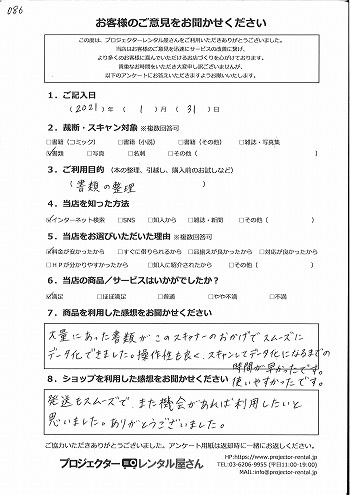 086
お客様のご意見をお聞かせください
この度は、プロジェクターレンタル屋さんをご利用いただきありがとうございました。
当店はお客様のご意見を迅速にサービスの改善に繋げ、
より多くのお客様に喜んでいただけるお店づくりを心がけております。
貴重なお時間をいただき大変申し訳ございませんが、
以下のアンケートにお答えいただきますようお願いいたします。
1．ご記入日
（ 2021 ）年（ 1 ）月（ 31 ）日
2．裁断・スキャン対象 ※複数回答可
□書籍（コミック） □書籍（小説） □書籍（その他） □雑誌・写真集
☑書類 □写真 □名刺 □その他（ ）
3．ご利用目的（本の整理、引越し、購入前のお試しなど）
（ 書類の整理 ）
4．当店を知った方法
☑インターネット検索 □SNS □知人から □雑誌・新聞 □その他（ ）
5．当店をお選びいただいた理由 ※複数回答可
☑料金が安かったから □すぐに借りられるから □品揃えが良かったから □対応が良かったから
□ＨＰが分かりやすかったから □知人に紹介されたから □その他（ ）
6．当店の商品／サービスはいかがでしたか？
☑満足 □ほぼ満足 □普通 □やや不満 □不満
7．商品を利用した感想をお聞かせください
大量にあった書類がこのスキャナーのおかげでスムーズに
データ化できました。操作性も良く、スキャンしてデータ化になるまでの
時間が早かったです。
使いやすかったです。
8．ショップを利用した感想をお聞かせください
発送もスムーズで、また機会があれば利用したいと
思いました。ありがとうございました。
ご協力いただきありがとうございました。アンケート用紙は返却時に一緒にお送りください。
プロジェクター レンタル屋さん
HP:https://www.projector-rental.jp
TEL:03-6206-9955 (平日11:00-19:00)
MAIL:info@projector-rental.jp